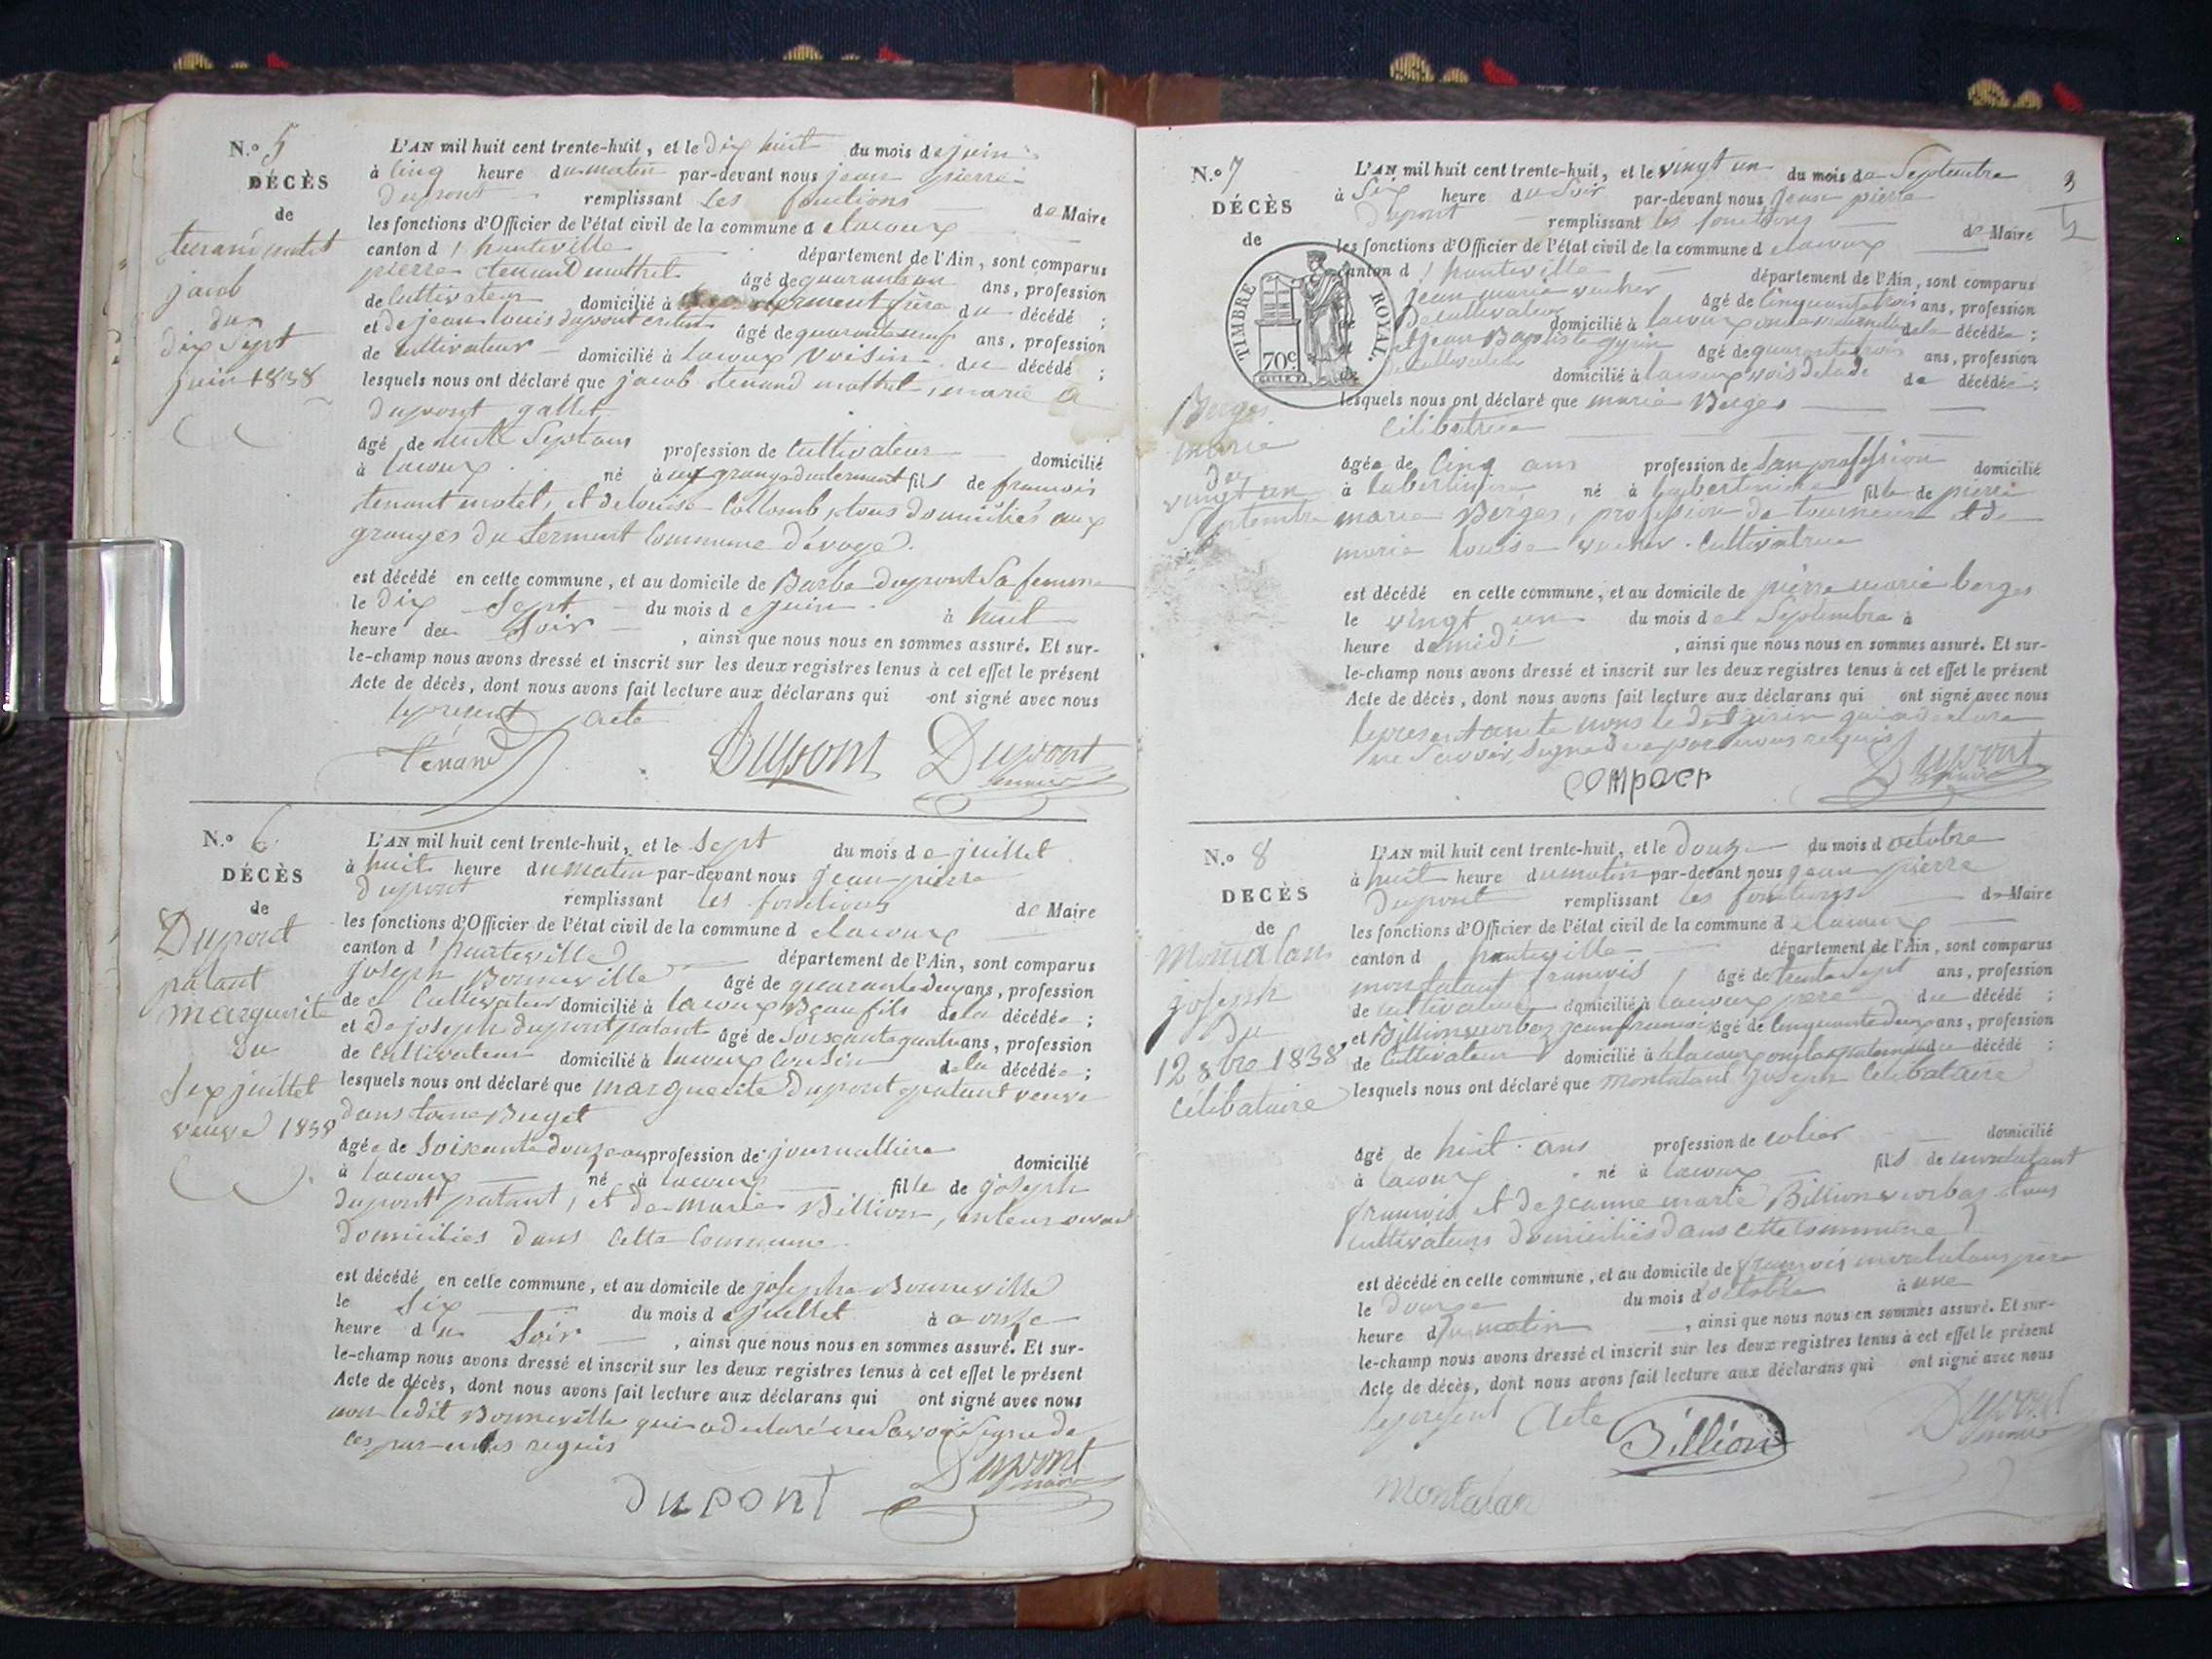 N.º 5
DÉCÈS
de
jacob
du
dix Sept
juin 1838
L'AN mil huit cent trente-huit, et le dix huit du mois de juin
à cinq heure du matin par-devant nous jean pierre
Dupont remplissant les fonctions de Maire
les fonctions d'Officier de l'état civil de la commune de lacoux
canton d'hauteville département de l'Ain, sont comparus
pierre tenand mottret âgé de quarante un ans, profession
de Cultivateur domicilié à frère du décédé ;
et de jean louis dupont âgé de quarante neuf ans, profession
de Cultivateur domicilié à Lacoux voisin du décédé ;
lesquels nous ont déclaré que jacob tenand mottret, marié a
dupont gallet
âgé de sept ans profession de Cultivateur domicilié
à lacoux né à fils de francois
tenant motet, et de louise Collomb, tous domiciliés aux
granges du Serment Commune
est décédé en cette commune, et au domicile de Barbe Dupont Sa femme
le dix Sept du mois de juin à huit
heure du Soir, ainsi que nous nous en sommes assuré. Et sur-
le-champ nous avons dressé et inscrit sur les deux registres tenus à cet effet le présent
Acte de décès, dont nous avons fait lecture aux déclarans qui ont signé avec nous
le present acte
Tenand Dupont Dupont
maire
N.º 6
DÉCÈS
de
Dupont
patant
marguerite
du
Six juillet
veuve 1838
L'AN mil huit cent trente-huit, et le Sept du mois de juillet
à huit heure du matin par-devant nous Jean pierre
Dupont remplissant les fonctions de Maire
les fonctions d'Officier de l'état civil de la commune de lacoux
canton d'hauteville département de l'Ain, sont comparus
Joseph Bonneville âgé de quarante deux ans, profession
de Cultivateur domicilié à lacoux Beau fils de la décédée ;
et de joseph dupont patant âgé de Soixante quatre ans, profession
de Cultivateur domicilié à lacoux Cousin de la décédée ;
lesquels nous ont déclaré que marguerite Dupont patant veuve
âgée de Soixante douze ans profession de journallière domicilié
à lacoux né à lacoux fille de joseph
dupont patant, et de marie Billion,
domiciliés dans cette Commune
est décédé en cette commune, et au domicile de joseph Bonneville
le Six du mois de juillet à onze
heure du Soir, ainsi que nous nous en sommes assuré. Et sur-
le-champ nous avons dressé et inscrit sur les deux registres tenus à cet effet le présent
Acte de décès, dont nous avons fait lecture aux déclarans qui ont signé avec nous
non ledit Bonneville qui a déclaré ne Savoir Signe de
ces par nous requis
Dupont Dupont
maire
N.º 7
DÉCÈS
de
Berges
marie
du
vingt un
Septembre
3
TIMBRE ROYAL.
70 c.
L'AN mil huit cent trente-huit, et le vingt un du mois de Septembre
à Six heure du Soir par-devant nous Jean pierre
Dupont remplissant les fonctions de Maire
les fonctions d'Officier de l'état civil de la commune de lacoux
canton d'hauteville département de l'Ain, sont comparus
jean marie vucher âgé de Cinquante trois ans, profession
de Cultivateur domicilié à lacoux oncle maternelle de la décédée ;
et jean Baptiste gyrin âgé de quarante trois ans, profession
de Cultivateur domicilié à lacoux de décédée ;
lesquels nous ont déclaré que marie Berges
Célibatrice
âgée de Cinq ans profession de San profession domicilié
à né à fille de pierre
marie Berges, profession de tourneur et de
marie louise vucher Cultivatrice
est décédé en cette commune, et au domicile de pierre marie berges
le vingt un du mois de Septembre à
heure de midi, ainsi que nous nous en sommes assuré. Et sur-
le-champ nous avons dressé et inscrit sur les deux registres tenus à cet effet le présent
Acte de décès, dont nous avons fait lecture aux déclarans qui ont signé avec nous
le present acte nons le dit gyrin qui a declare
ne Savoir Signe de ce par nous requis
Dupont
maire
N.º 8
DÉCÈS
de
montalan
joseph
du
12 8bre 1838
Célibataire
L'AN mil huit cent trente-huit, et le Douze du mois d'octobre
à huit heure du matin par-devant nous Jean pierre
Dupont remplissant les fonctions de Maire
les fonctions d'Officier de l'état civil de la commune de lacoux
canton d hauteville département de l'Ain, sont comparus
montalant francois, âgé de trente Sept ans, profession
de Cultivateur domicilié à lacoux pere du décédé ;
et Billion jean francois âgé de Cinquante deux ans, profession
de Cultivateur domicilié à lacoux du décédé ;
lesquels nous ont déclaré que montalant joseph Celibataire
âgé de huit ans profession de domicilié
à lacoux né à lacoux fils de montalant
francois et de jeanne marie Billion tous
cultivateurs domiciliés dans cette Commune
est décédé en cette commune, et au domicile de francois montalant pere
le douze du mois d'octobre à une
heure du matin, ainsi que nous nous en sommes assuré. Et sur-
le-champ nous avons dressé et inscrit sur les deux registres tenus à cet effet le présent
Acte de décès, dont nous avons fait lecture aux déclarans qui ont signé avec nous
le present Acte Billion Dupont
maire
Montalan